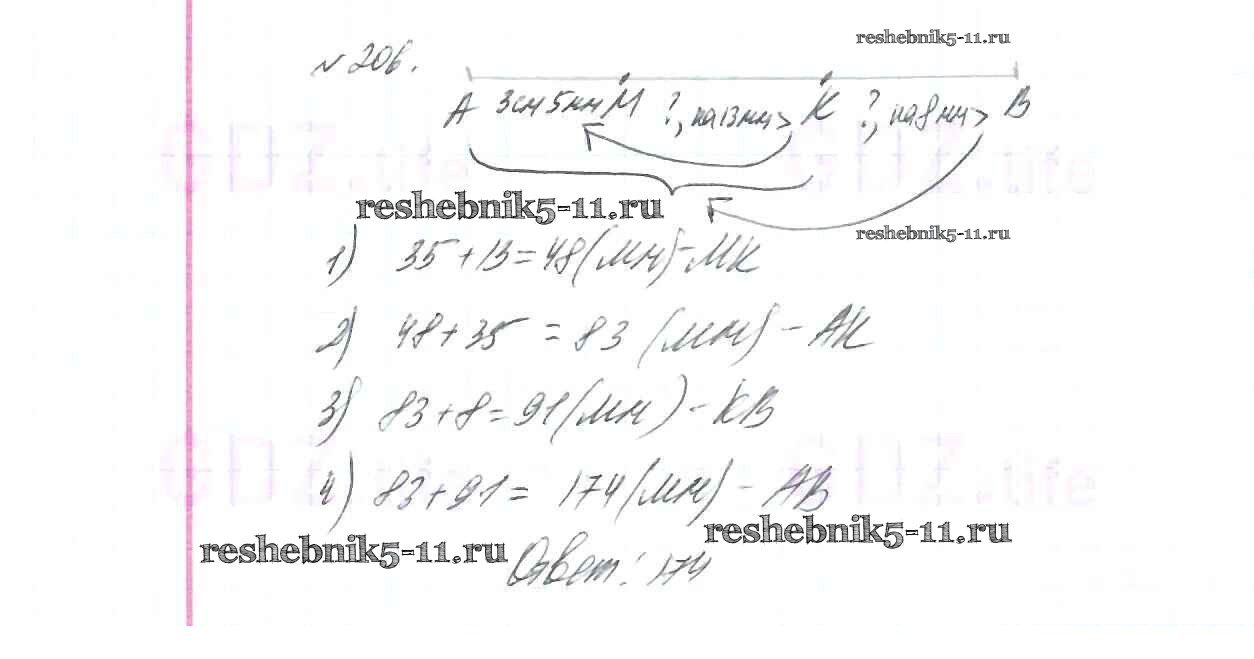 reshebnik5-11.ru
№206.
A 3см 5мм M ?, на 13мм> K ?, на 8мм> B
GDZ.life GDZ.life
reshebnik5-11.ru
reshebnik5-11.ru
1) 35+13=48(мм)-MK
2) 48+35 = 83 (мм) - AK
3) 83+8=91(мм) - KB
GDZ.life GDZ.life
4) 83+91= 174(мм) - AB
reshebnik5-11.ru
reshebnik5-11.ru
Ответ: 174